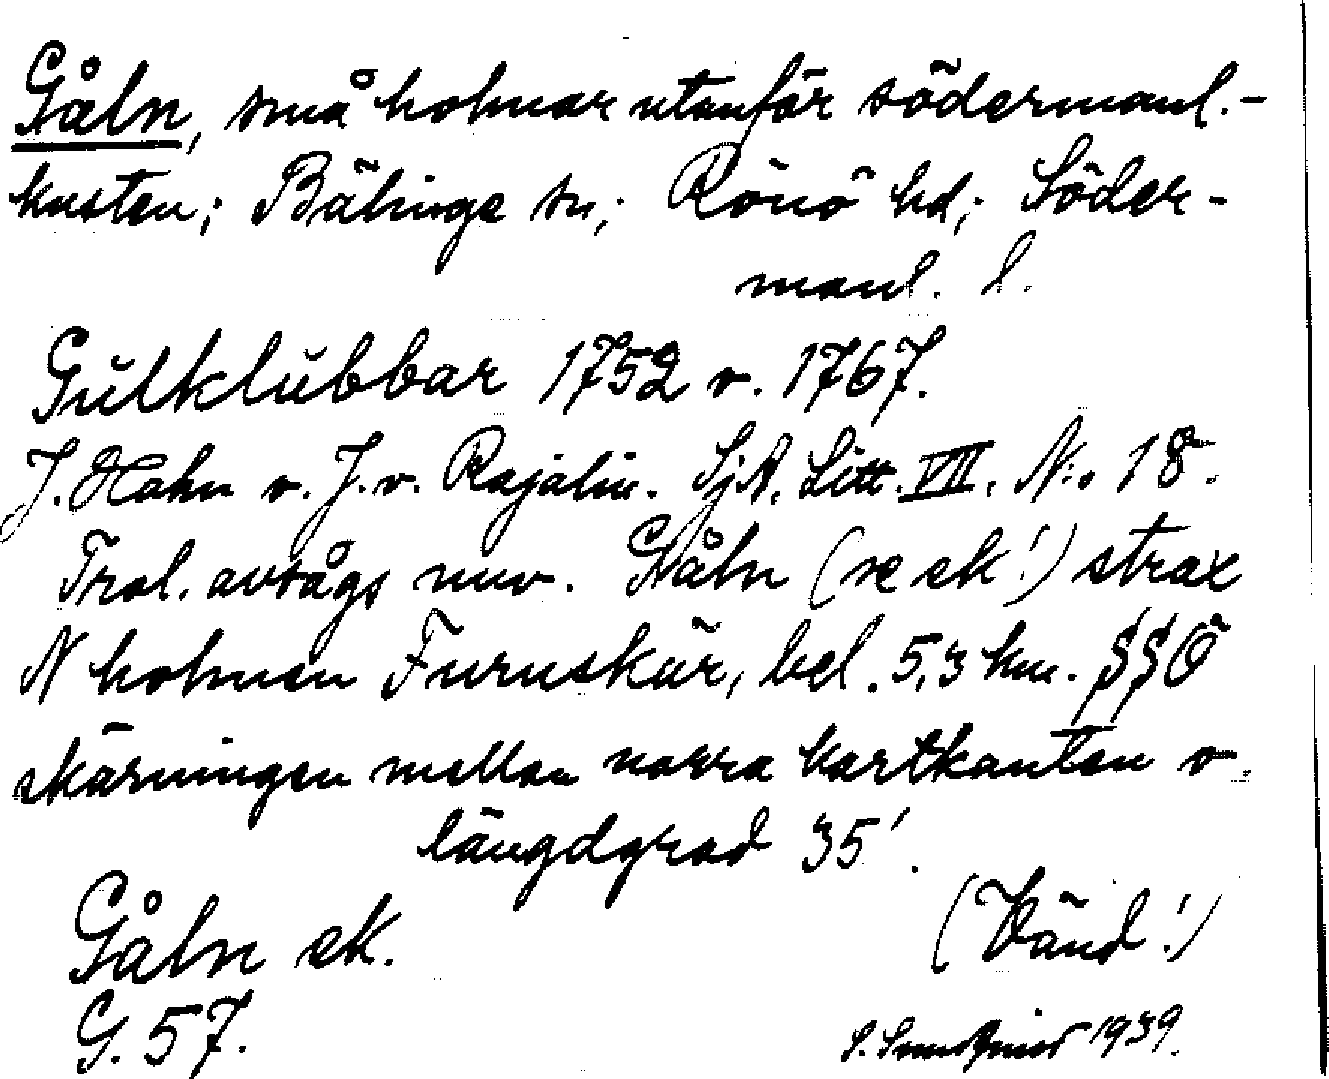 Gåln, små holmar utanför södermanl.-
kusten; Bälinge sn; Rönö hd; Söder-
manl. l.
Gulklubbar 1752 o. 1767.
J. Hahn o. J. v. Rajalin. SjA. Litt. VII. N:o 18.
Trol. avsågs nuv. Gåln (se ek!) strax
N holmen Furuskär, bel. 5,3 km. SSO
skärningen mellan norra kartkanten o.
längdgrad 35'.
Gåln ek. (Vänd!)
G. 57. 1939.